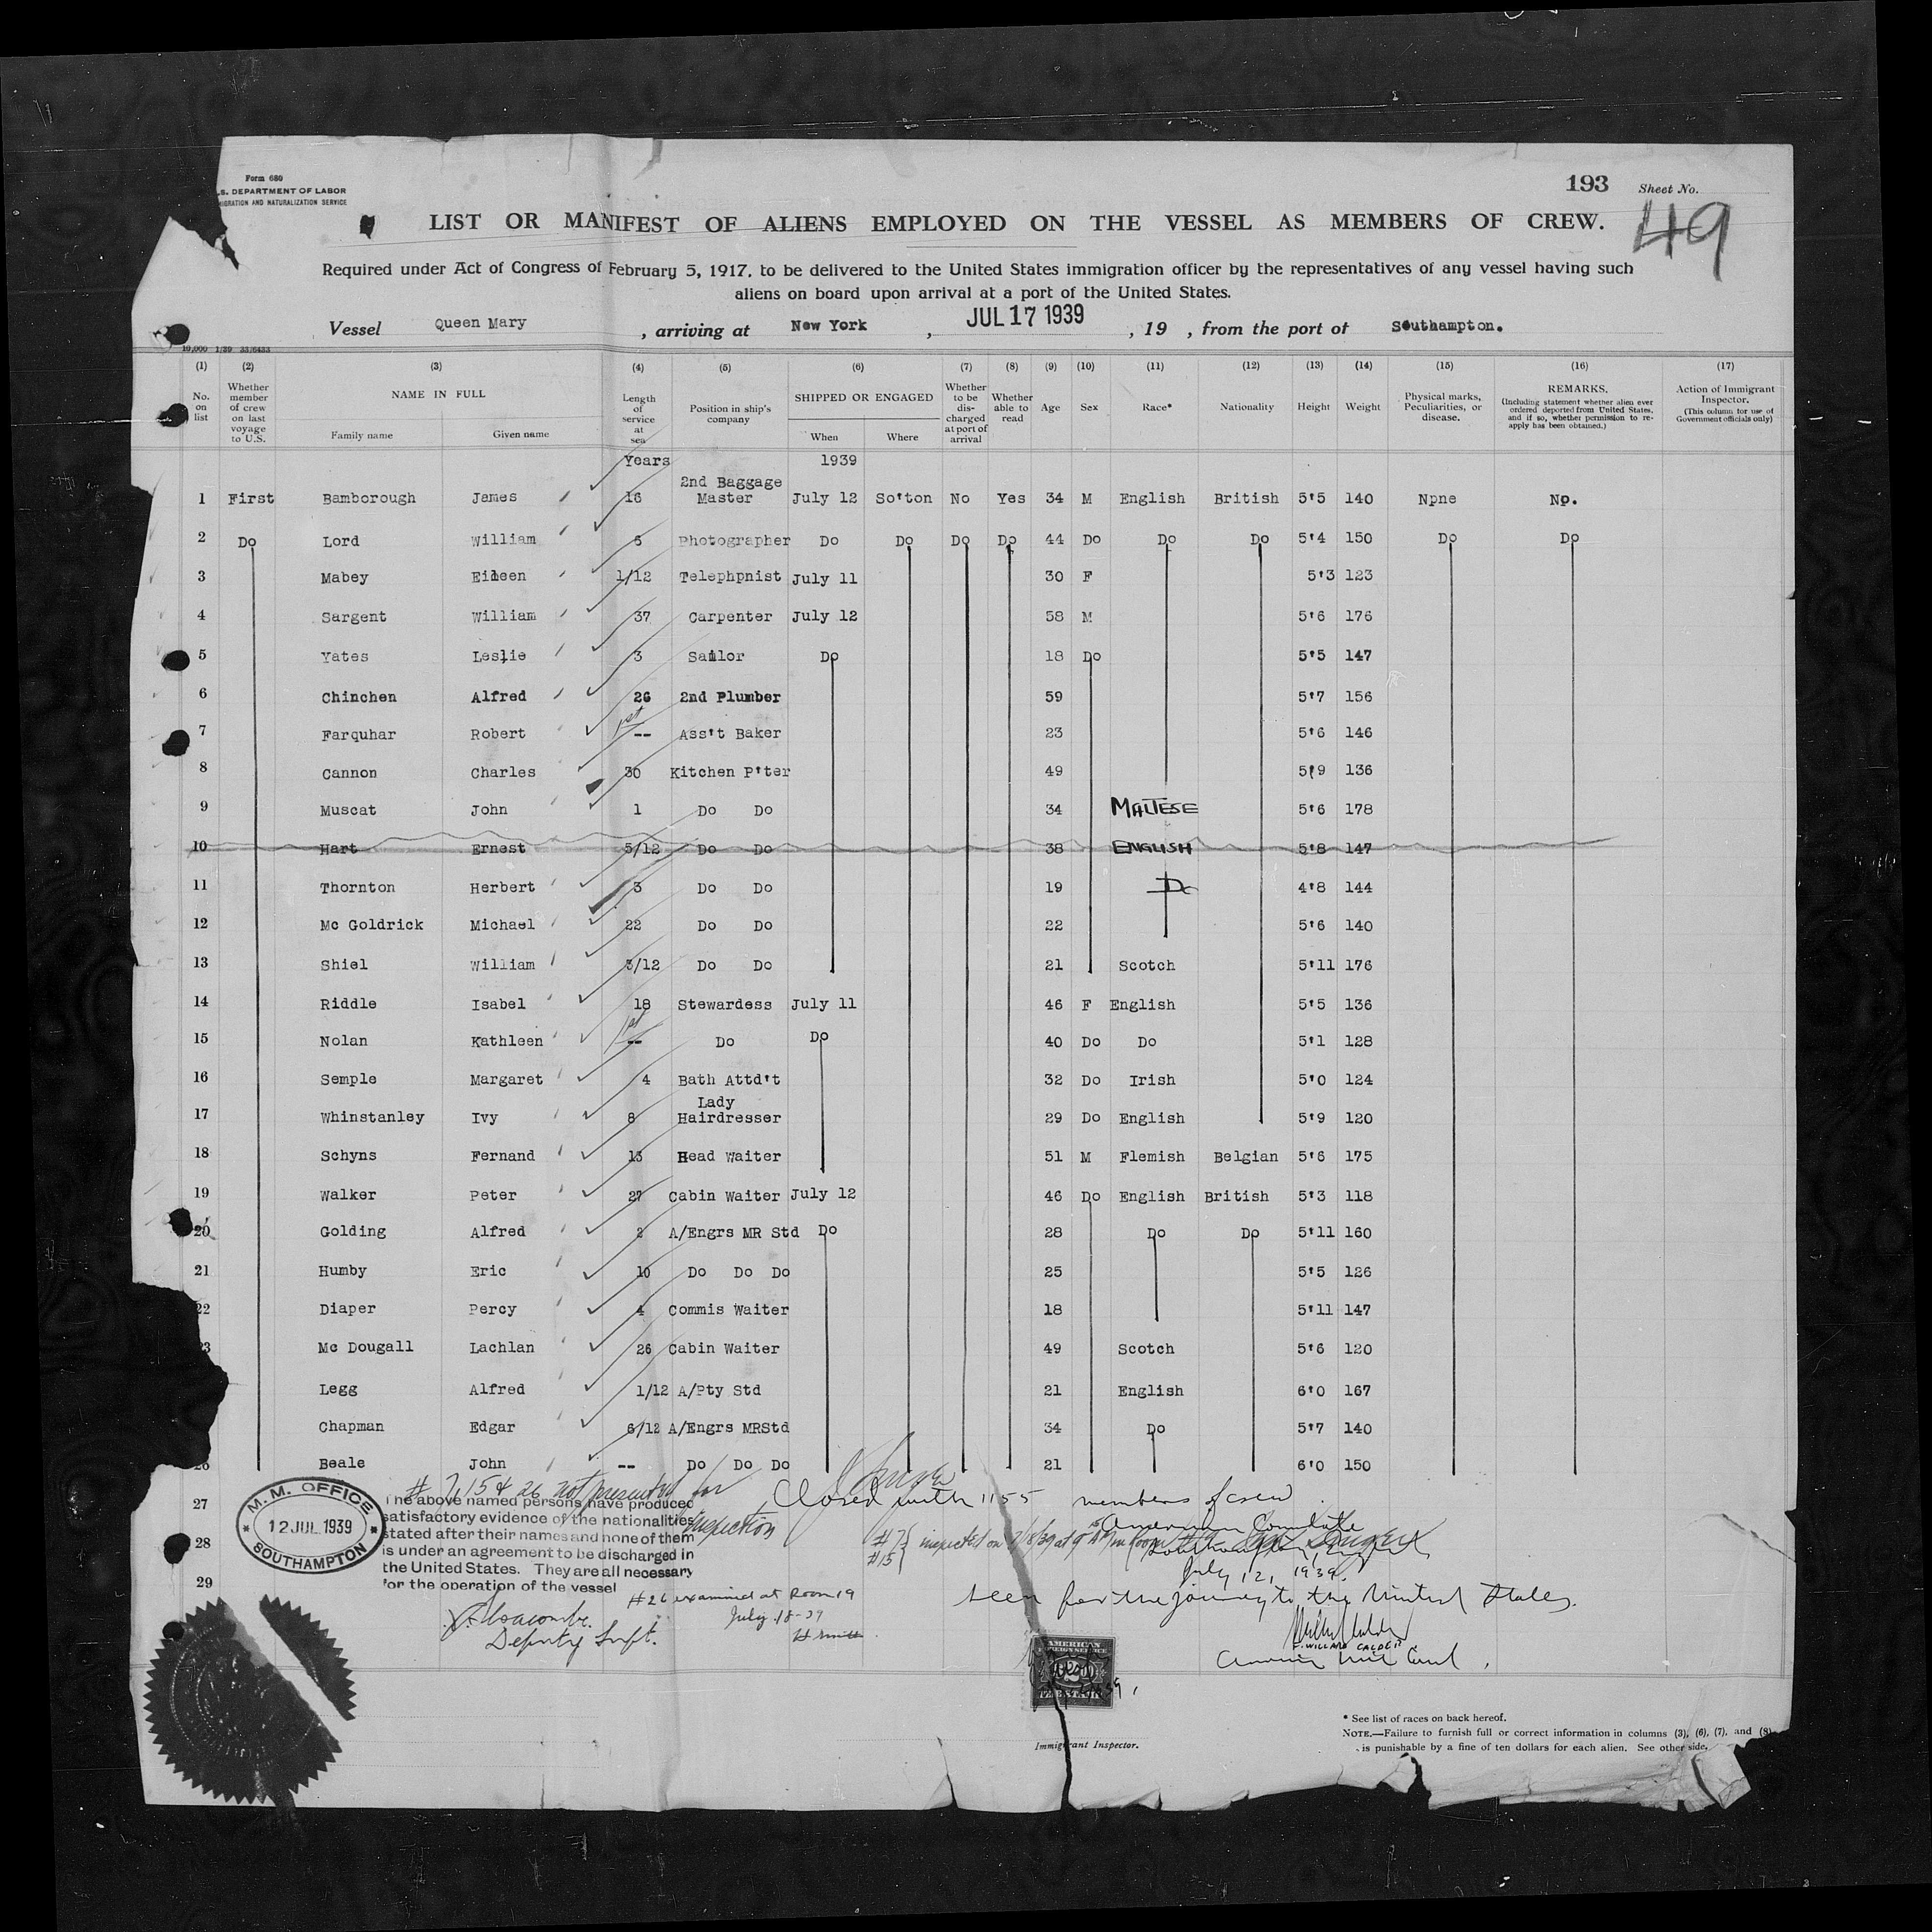 Form 680
S. DEPARTMENT OF LABOR
IGRATION AND NATURALIZATION SERVICE
193 Sheet No.
49
LIST OR MANIFEST OF ALIENS EMPLOYED ON THE VESSEL AS MEMBERS OF CREW.
Required under Act of Congress of February 5, 1917, to be delivered to the United States immigration officer by the representatives of any vessel having such
aliens on board upon arrival at a port of the United States.
Vessel Queen Mary , arriving at New York , JUL 17 1939 , 19 , from the port of Southampton.
10,000 1/39 33/6433
(1) (2) (3) (4) (5) (6) (7) (8) (9) (10) (11) (12) (13) (14) (15) (16) (17)
No. on list
Whether member of crew on last voyage to U.S.
NAME IN FULL
Family name Given name
Length of service at sea
Position in ship's company
SHIPPED OR ENGAGED
When Where
Whether to be discharged at port of arrival
Whether able to read
Age Sex Race* Nationality Height Weight
Physical marks, Peculiarities, or disease.
REMARKS,
(Including statement whether alien ever ordered deported from United States, and if so, whether permission to re-apply has been obtained.)
Action of Immigrant Inspector.
(This column for use of Government officials only)
Years 1939
2nd Baggage
1 First Bamborough James 16 Master July 12 So'ton No Yes 34 M English British 5'5 140 Npne No.
2 Do Lord William 6 Photographer Do Do Do Do 44 Do Do Do 5'4 150 Do Do
3 Mabey Eileen 1/12 Telephpnist July 11 30 F 5'3 123
4 Sargent William 37 Carpenter July 12 58 M 5'6 176
5 Yates Leslie 3 Sailor Do 18 Do 5'5 147
6 Chinchen Alfred 26 2nd Plumber 59 5'7 156
7 Farquhar Robert 1st -- Ass't Baker 23 5'6 146
8 Cannon Charles 30 Kitchen P'ter 49 5'9 136
9 Muscat John 1 Do Do 34 MALTESE 5'6 178
10 Hart Ernest 5/12 Do Do 38 ENGLISH 5'8 147
11 Thornton Herbert 3 Do Do 19 Do 4'8 144
12 Mc Goldrick Michael 22 Do Do 22 5'6 140
13 Shiel William 3/12 Do Do 21 Scotch 5'11 176
14 Riddle Isabel 18 Stewardess July 11 46 F English 5'5 136
15 Nolan Kathleen 1st -- Do Do 40 Do Do 5'1 128
16 Semple Margaret 4 Bath Attd't 32 Do Irish 5'0 124
Lady
17 Whinstanley Ivy 8 Hairdresser 29 Do English 5'9 120
18 Schyns Fernand 13 Head Waiter 51 M Flemish Belgian 5'6 175
19 Walker Peter 27 Cabin Waiter July 12 46 Do English British 5'3 118
20 Golding Alfred 2 A/Engrs MR Std Do 28 Do Do 5'11 160
21 Humby Eric 10 Do Do Do 25 5'5 126
22 Diaper Percy 4 Commis Waiter 18 5'11 147
3 Mc Dougall Lachlan 26 Cabin Waiter 49 Scotch 5'6 120
Legg Alfred 1/12 A/Pty Std 21 English 6'0 167
Chapman Edgar 6/12 A/Engrs MRStd 34 Do 5'7 140
26 Beale John -- Do Do Do 21 6'0 150
# 7, 15 & 26 not presented for
inspection
27
28
29
M.M. OFFICE
12 JUL 1939
SOUTHAMPTON
The above named persons have produced
satisfactory evidence of the nationalities
stated after their names and none of them
is under an agreement to be discharged in
the United States. They are all necessary
for the operation of the vessel
Deputy Supt.
Closed with 1155 members of crew.
American Consulate
#7 } inspected on 7/18/39 at
#15
July 12, 1939.
#26 examined at Room 19
July 18-39
Seen for the journey to the United States.
F. WILLARD CALDER
American Vice Consul.
AMERICAN
FOREIGN SERVICE
Immigrant Inspector.
* See list of races on back hereof.
NOTE.—Failure to furnish full or correct information in columns (3), (6), (7), and (8)
is punishable by a fine of ten dollars for each alien. See other side.